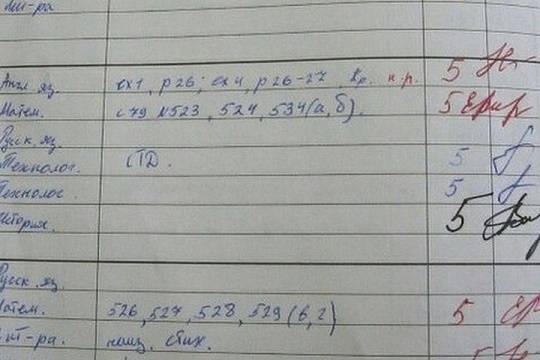 Лит-ра
Англ. яз. ex 1, p 26; ex 4, p 26-27 к.р. 5
Матем. с 79 №523, 524, 534(а, б). 5
Русск. яз.
Технолог. СТД. 5
Технолог. 5
История. 5
Русск. яз.
Матем. 526, 527, 528, 529(в, г) 5
Лит-ра. наиз. стих.